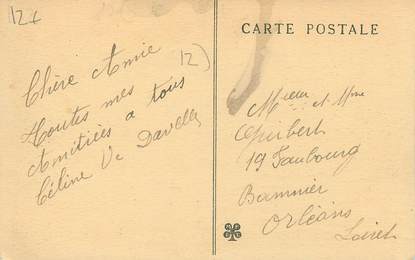 12
12
CARTE POSTALE
Chère Amie
toutes mes
Amitiées a tous
Céline Ve Davelle
Mieur et Mme
19 Faubourg
Bannier
Orléans
Loiret